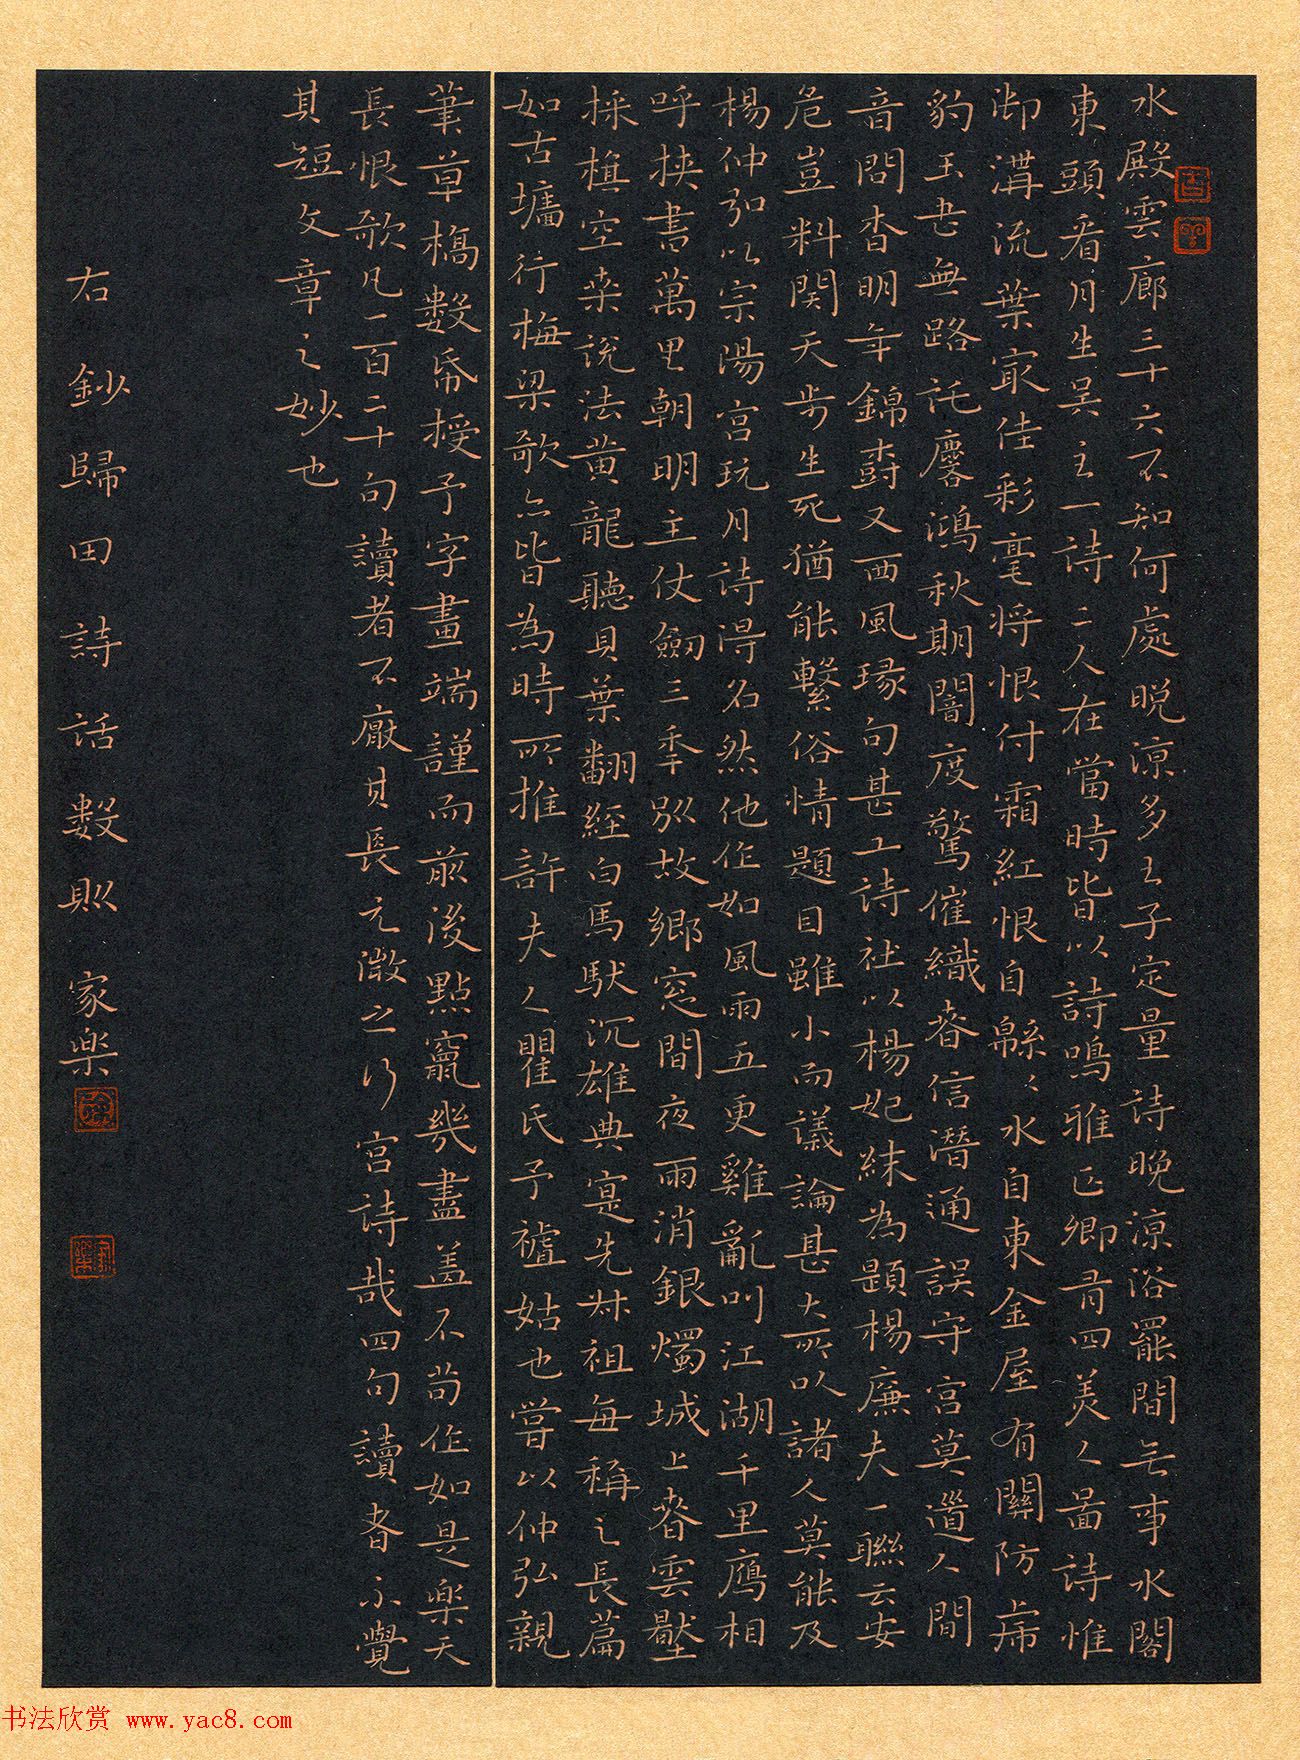 水殿雲廊三十六不知何處晚涼多王子定量詩晚涼浴罷閒無事水閣
東頭看月生吴主一詩二人在當時皆以詩鳴雅正卿有四美人啚詩惟
御溝流葉㝡佳彩毫將恨付霜紅恨自緜々水自東金屋有關防虎
豹玉書無路託鱗鴻秋期闇度驚催織春信潛通誤守宮莫道人間
音問杳明年錦樹又西風瑑句甚工詩社以楊妃袜為題楊廉夫一聯云安
危豈料関天步生死猶能繫俗情題目雖小而議論甚大所以諸人莫能及
楊仲弘以宗陽宮玩月詩得名然他作如風雨五更雞亂叫江湖千里鴈相
呼挾書萬里朝明主仗劒三年別故鄉窓間夜雨消銀燭城上春雲壓
採樵空桑說法黃龍聽貝葉翻經白馬馱沉雄典寔先叔祖每稱之長篇
如古墻行梅梁歌亦皆為時所推許夫人瞿氏予祖姑也嘗以仲弘親
筆草槁數帋授予字畫端謹而前後點竄幾盡盖不苟作如是樂天
長恨歌凡一百二十句讀者不厭其長元微之行宮詩哉四句讀者不覺
其短文章之妙也
右鈔歸田詩話數則 家樂
书法欣赏 www.yac8.com